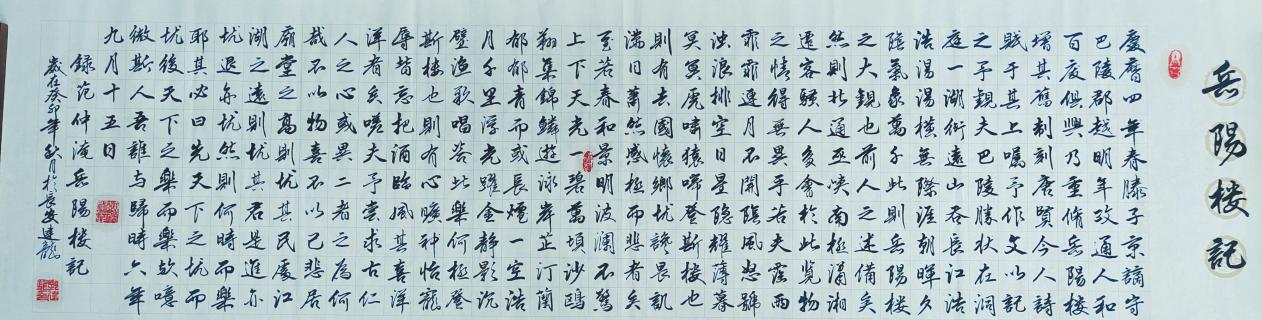 岳陽楼記
慶曆四年春滕子京謫守
巴陵郡越明年政通人和
百廢俱興乃重脩岳陽楼
增其舊制刻唐賢今人詩
賦于其上嘱予作文以記
之予觀夫巴陵勝狀在洞
庭一湖銜遠山吞長江浩
浩湯湯横無際涯朝暉夕
陰氣象萬千此則岳陽楼
之大觀也前人之述備矣
然則北通巫峽南極瀟湘
遷客騷人多會於此览物
之情得無異乎若夫霪雨
霏霏連月不開陰風怒號
浊浪排空日星隐耀薄暮
冥冥虎嘯猿啼登斯楼也
則有去國懷鄉忧讒畏譏
满目蕭然感極而悲者矣
至若春和景明波澜不驚
上下天光一碧萬頃沙鷗
翔集錦鱗遊泳岸芷汀蘭
郁郁青而或長煙一空浩
月千里浮光躍金静影沉
璧漁歌唱答此樂何極登
斯楼也則有心曠神怡寵
辱皆忘把酒臨風其喜洋
洋者矣嗟夫予嘗求古仁
人之心或異二者之為何
哉不以物喜不以己悲居
廟堂之高則忧其民處江
湖之遠則忧其君是進亦
忧退亦忧然則何時而樂
耶其必曰先天下之忧而
忧後天下之樂而樂歟噫
微斯人吾誰与歸時六年
九月十五日
錄范仲淹岳陽楼記
歲在癸卯年秋月於長安建龍